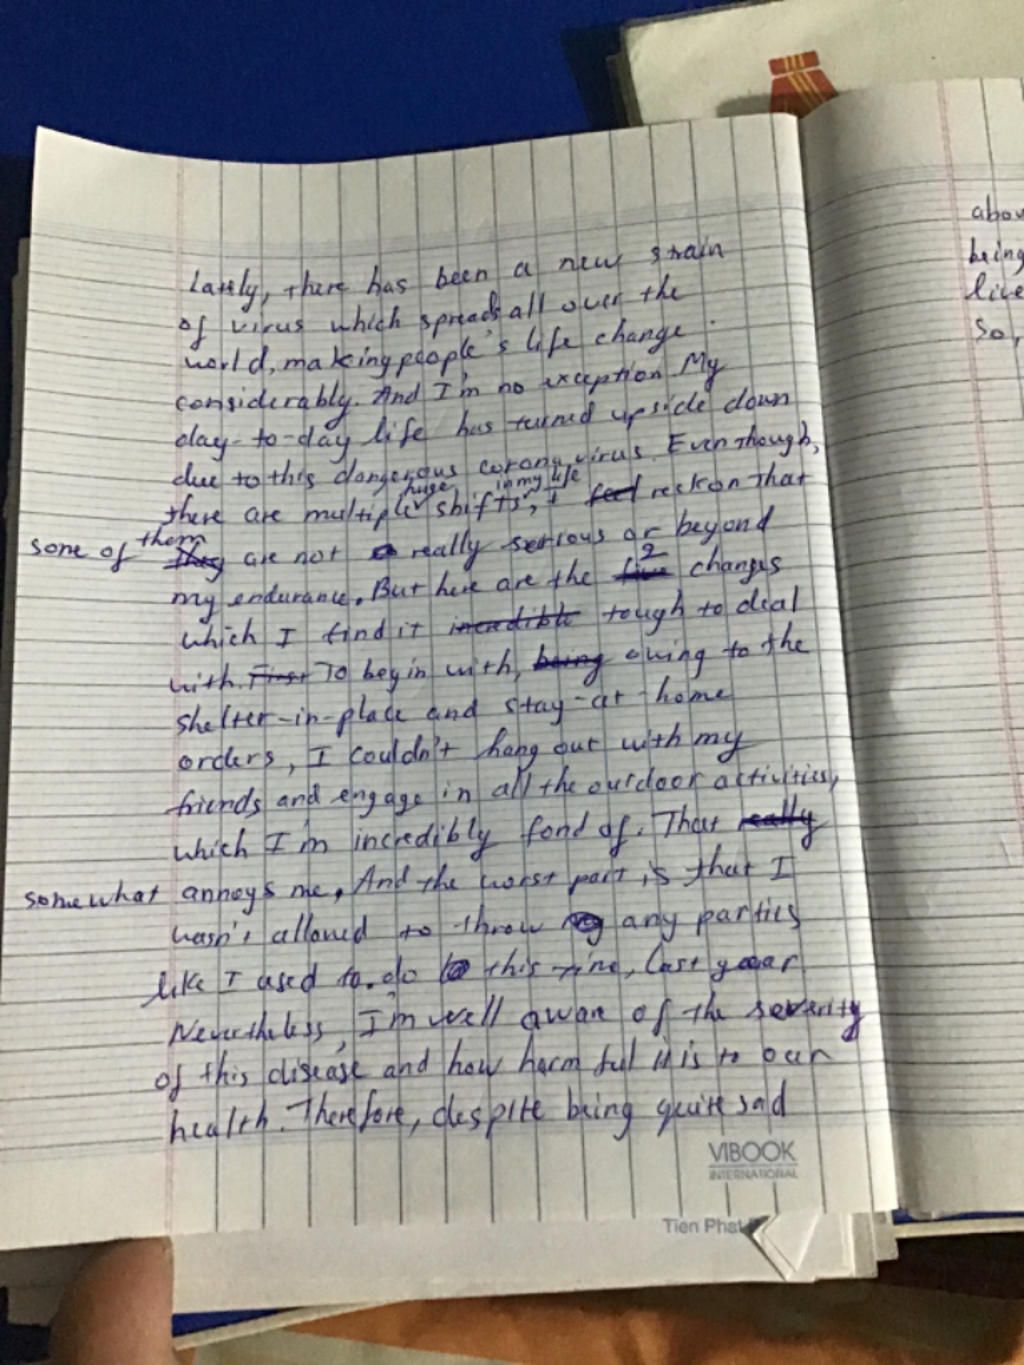 Lately, there has been a new strain
of virus which spreads all over the
world, making people's life change
considerably. And I'm no exception My
day-to-day life has turned upside down
due to this dangerous corona virus. Even though,
there are multiple huge shifts in my life, I feel reckon that
some of them they are not a really serious or beyond
my endurance. But here are the five 2 changes
which I find it incredible tough to deal
with. First To begin with, being owing to the
shelter-in-place and stay-at-home
orders, I couldn't hang out with my
friends and engage in all the outdoor activities,
which I'm incredibly fond of. That really
somewhat annoys me, And the worst part is that I
wasn't allowed to throw any parties
like I used to. do this time, last year
Nevertheless, I'm well aware of the severity
of this disease and how harmful it is to our
health. Therefore, despite being quite sad
VIBOOK
INTERNATIONAL
Tien Phat
abou
being
live
So,